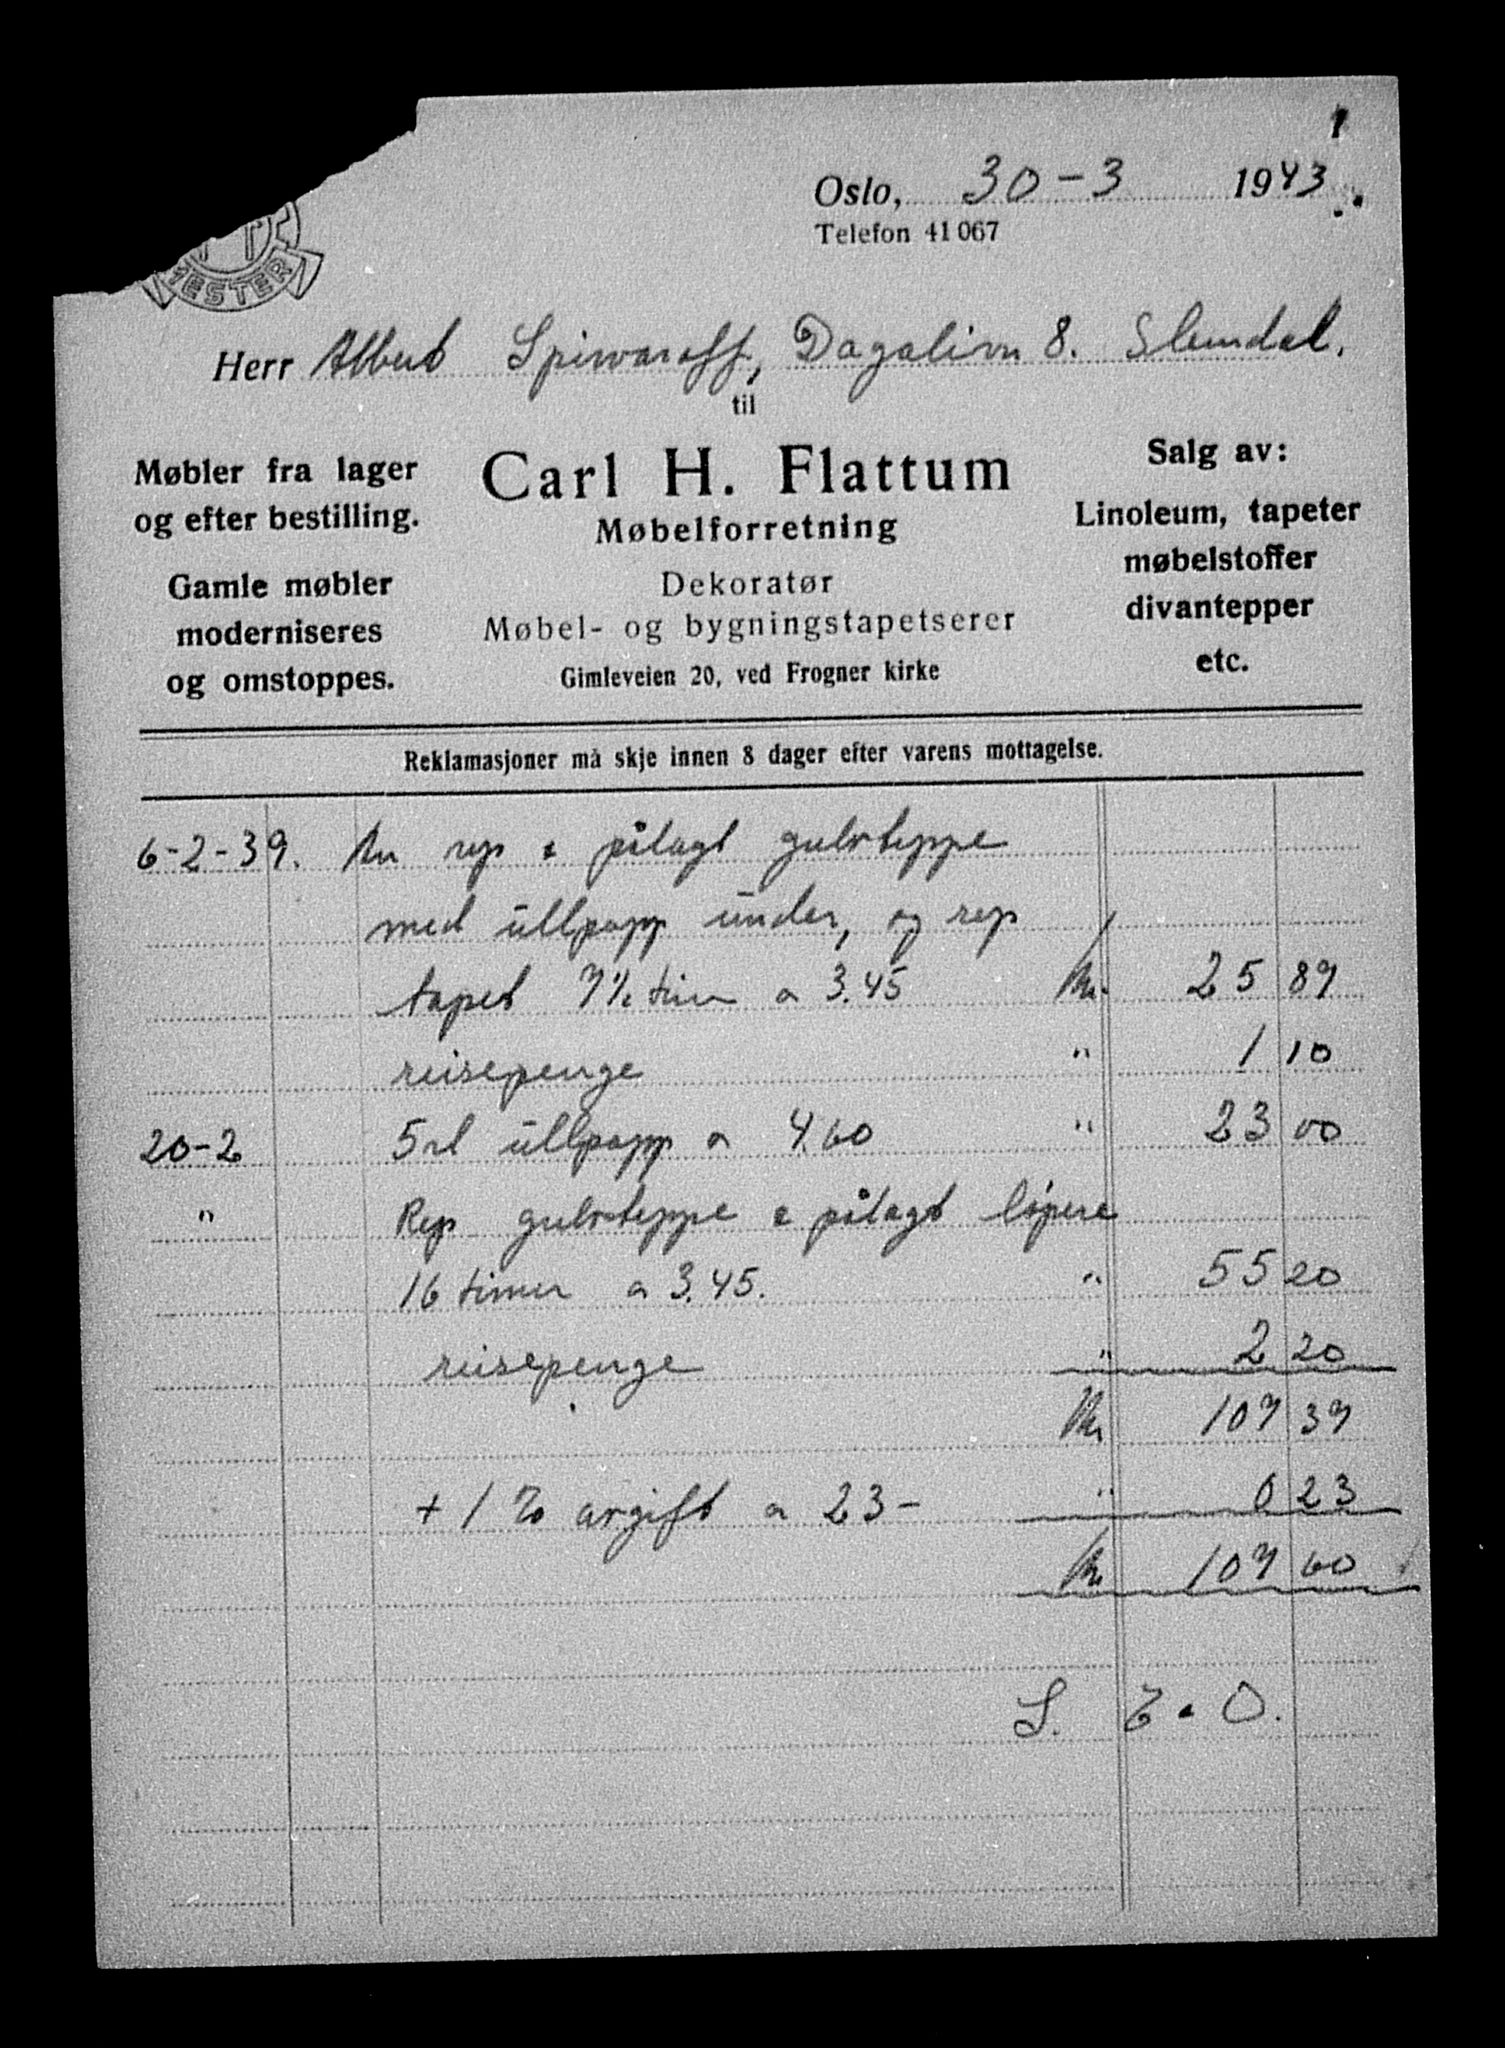 Oslo, 30-3 1943
Telefon 41 067
MESTER
Herr Albert Spirwaroff, Dagalivn 8. Slemdal.
til
Carl H. Flattum
Møbelforretning
Dekoratør
Møbel- og bygningstapetserer
Gimleveien 20, ved Frogner kirke
Møbler fra lager
og efter bestilling.
Gamle møbler
moderniseres
og omstoppes.
Salg av:
Linoleum, tapeter
møbelstoffer
divantepper
etc.
Reklamasjoner må skje innen 8 dager efter varens mottagelse.
6-2-39. An rep & pålagt gulvteppe
med ullpapp under, og rep
tapet 7½ timer a 3.45 Kr. 25 87
reisepenge " 1 10
20-2 5 rl ullpapp a 4.60 " 23 00
" Rep gulvteppe & pålagt løpere
16 timer a 3.45. " 55 20
reisepenge " 2 20
Kr 107 37
+ 1 % avgift a 23- " 0 23
Kr 107 60
S. E. & O.